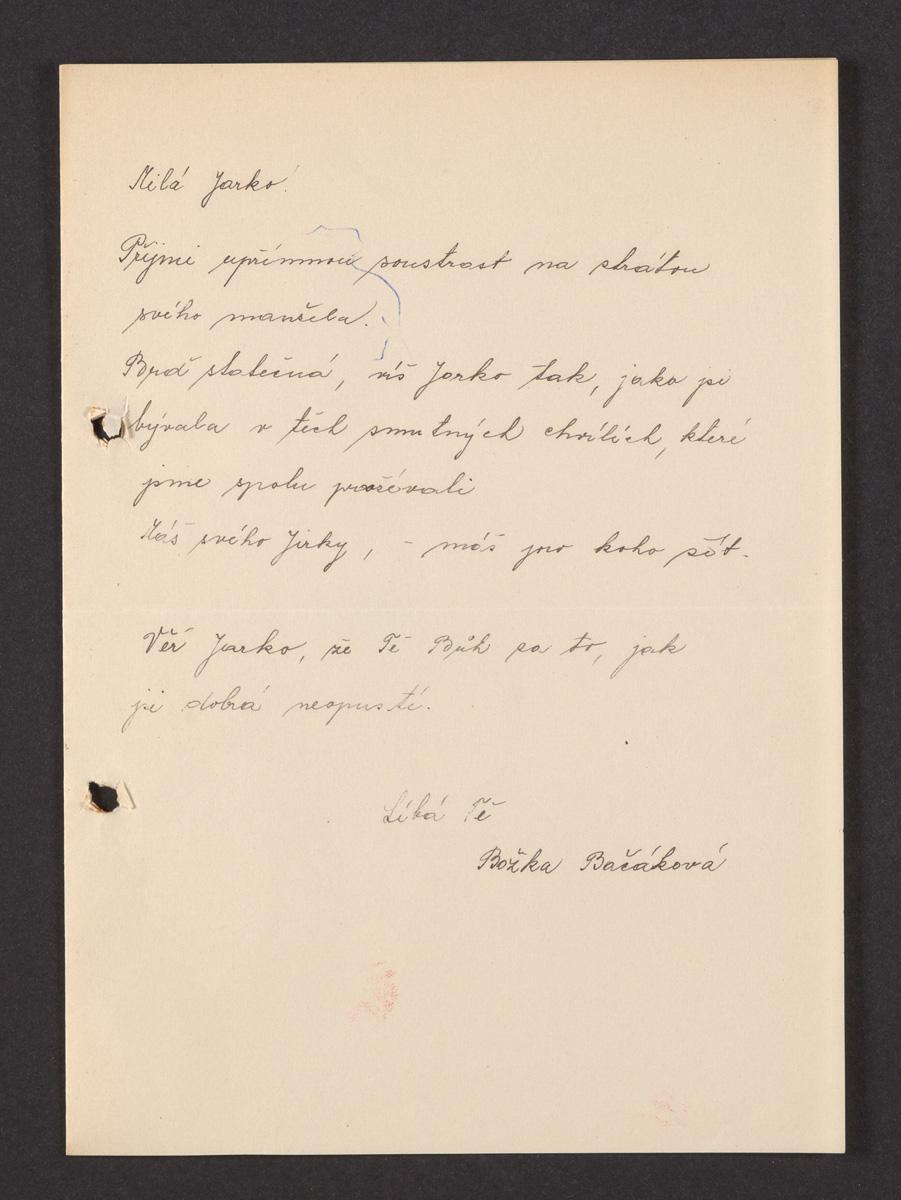 Milá Jarko!
Přijmi upřímnou soustrast na strátou
svého manžela.
Brď statečná, víš Jarko tak, jako jsi
bývala v těch smutných chvílích, které
jsme spolu prožívali
Máš svého Jirky, – máš pro koho žít.
Věř Jarko, že Tě Bůh za to, jak
jsi dobrá neopustí.
Líbá Tě
Božka Bačáková